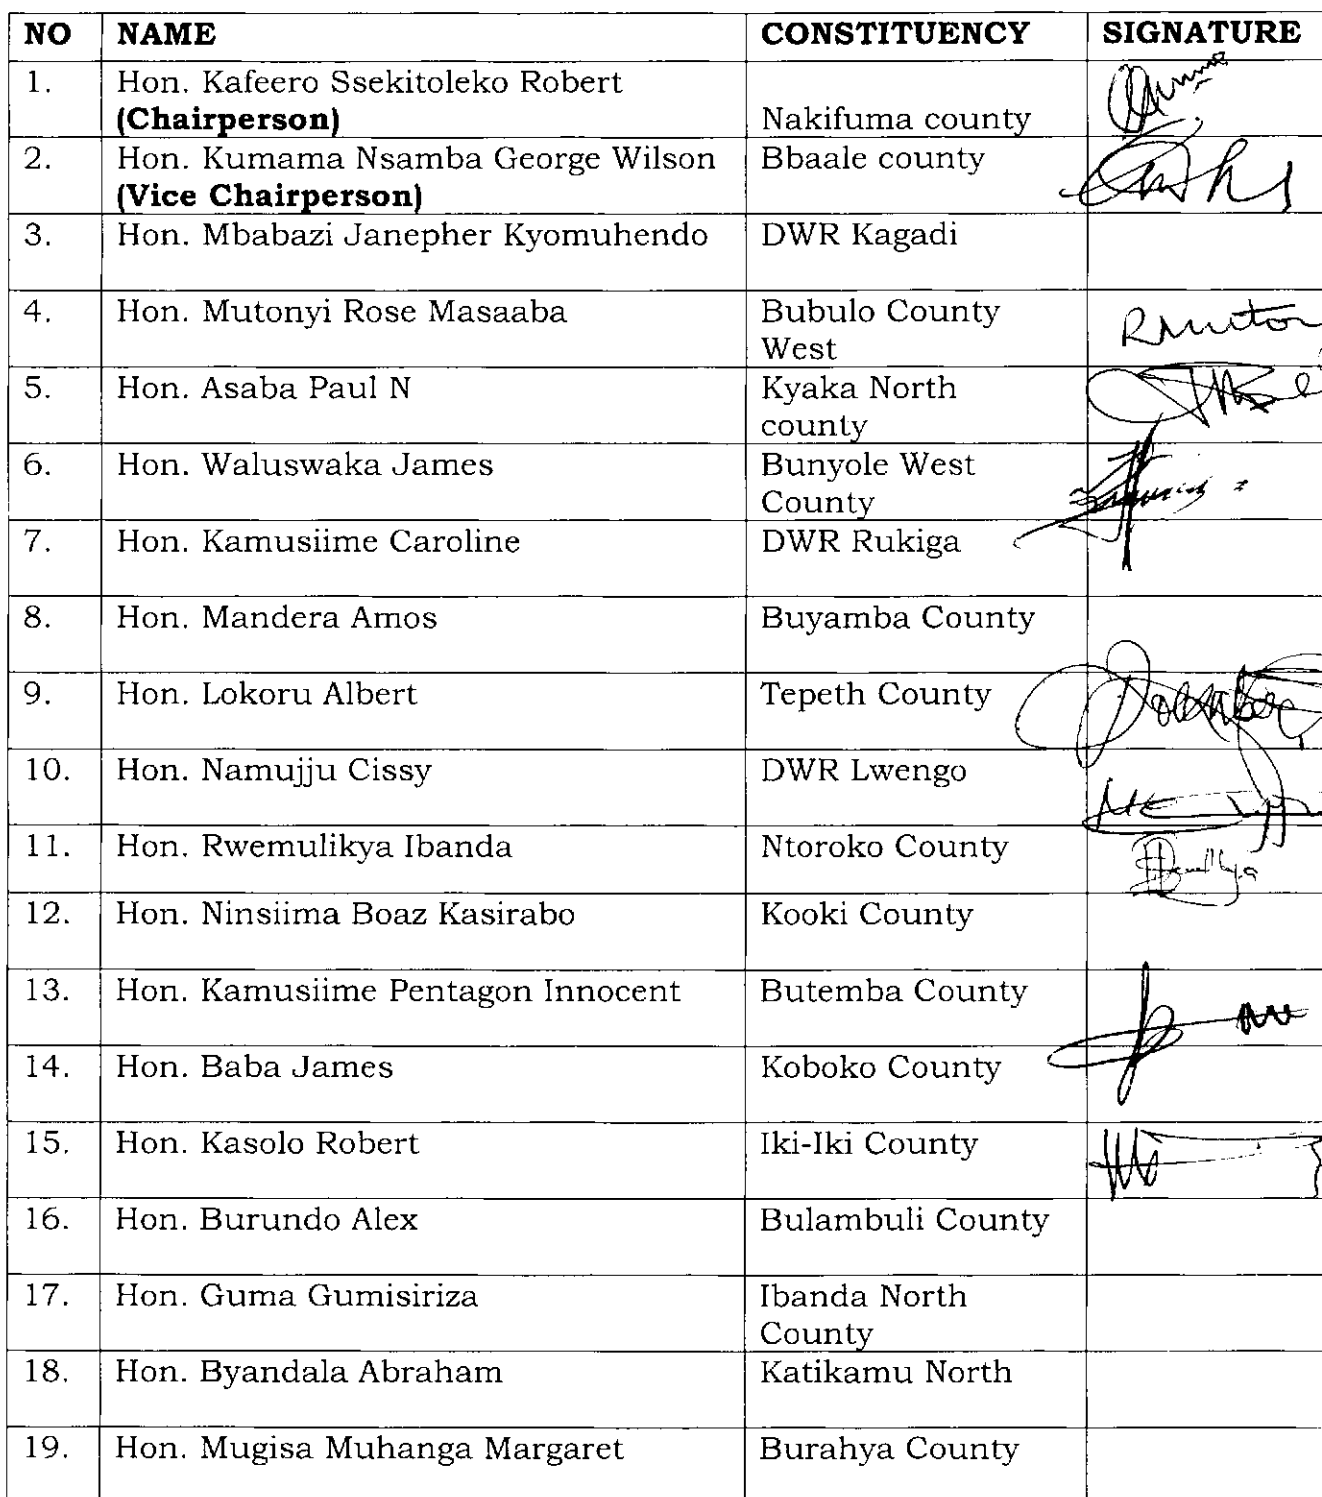 NO NAME CONSTITUENCY SIGNATURE
1. Hon. Kafeero Ssekitoleko Robert
(Chairperson) Nakifuma county
2. Hon. Kumama Nsamba George Wilson Bbaale county
(Vice Chairperson)
3. Hon. Mbabazi Janepher Kyomuhendo DWR Kagadi
4. Hon. Mutonyi Rose Masaaba Bubulo County
West
5. Hon. Asaba Paul N Kyaka North
county
6. Hon. Waluswaka James Bunyole West
County
7. Hon. Kamusiime Caroline DWR Rukiga
8. Hon. Mandera Amos Buyamba County
9. Hon. Lokoru Albert Tepeth County
10. Hon. Namujju Cissy DWR Lwengo
11. Hon. Rwemulikya Ibanda Ntoroko County
12. Hon. Ninsiima Boaz Kasirabo Kooki County
13. Hon. Kamusiime Pentagon Innocent Butemba County
14. Hon. Baba James Koboko County
15. Hon. Kasolo Robert Iki-Iki County
16. Hon. Burundo Alex Bulambuli County
17. Hon. Guma Gumisiriza Ibanda North
County
18. Hon. Byandala Abraham Katikamu North
19. Hon. Mugisa Muhanga Margaret Burahya County